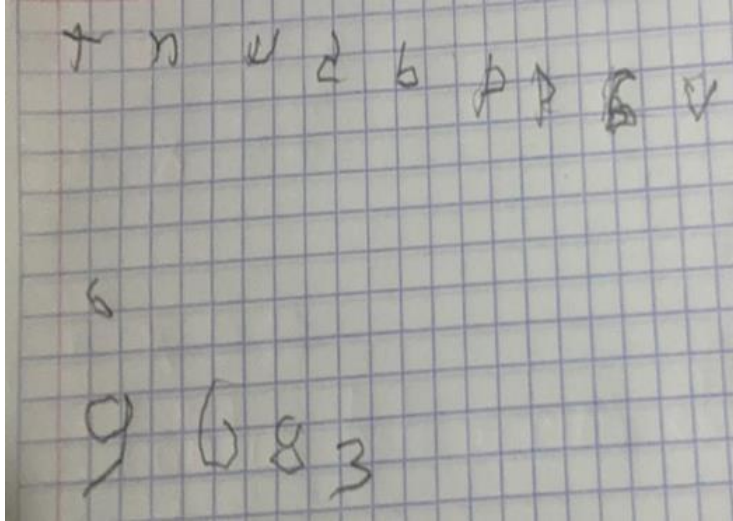 t n u d b p p B v
6
9 6 8 3